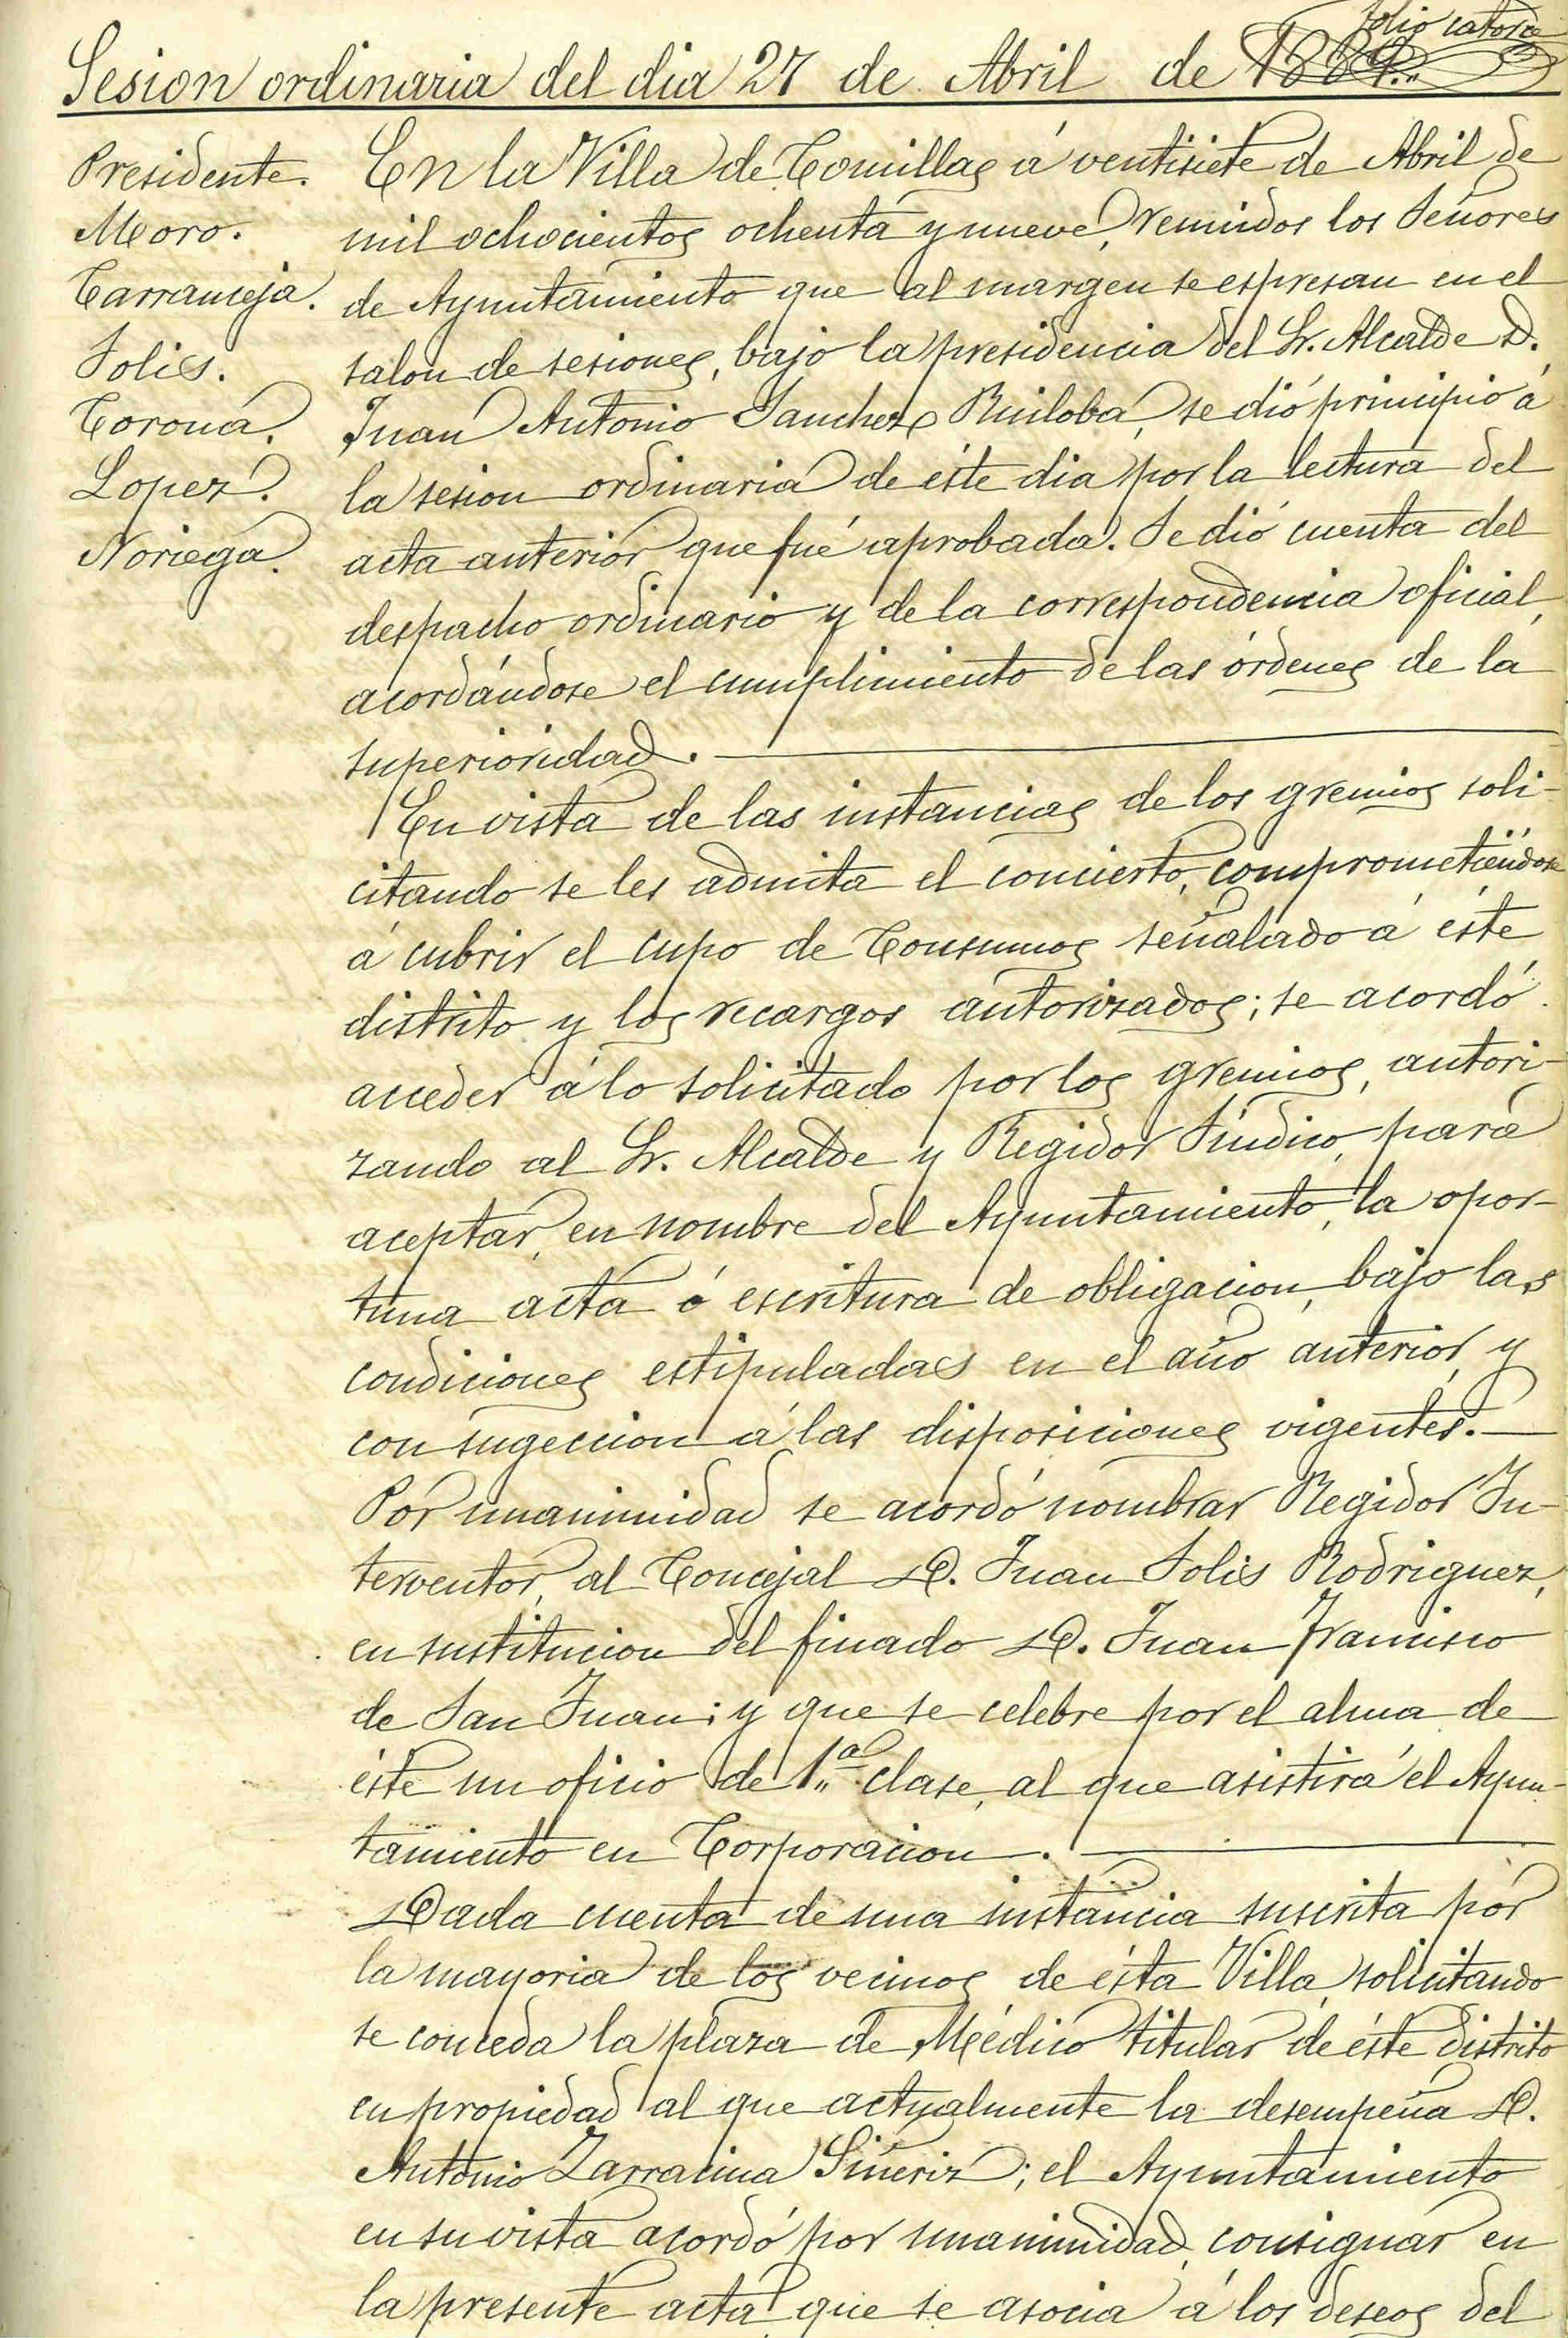 folio catorce
Sesion ordinaria del dia 27 de Abril de 1889.
Presidente.
Moro.
Carranceja.
Solis.
Corona.
Lopez.
Noriega.
En la Villa de Comillas á ventisiete de Abril de
mil ochocientos ochenta y nueve, reunidos los Señores
de Ayuntamiento que al margen se espresan en el
salon de sesiones, bajo la presidencia del Sr. Alcalde D.
Juan Antonio Sanchez Ruiloba, se dió principio á
la sesion ordinaria de éste dia por la lectura del
acta anterior que fué aprobada. Se dió cuenta del
despacho ordinario y de la correspondencia oficial,
acordándose el cumplimiento de las órdenes de la
superioridad.
En vista de las instancias de los gremios soli-
citando se les admita el concierto, comprometiéndose
á cubrir el cupo de Consumos señalado á éste
distrito y los recargos autorizados; se acordó
acceder á lo solicitado por los gremios, autori-
zando al Sr. Alcalde y Regidor Síndico, para
aceptar, en nombre del Ayuntamiento, la opor-
tuna acta ó escritura de obligacion, bajo las
condiciones estipuladas en el año anterior, y
con sugeccion á las disposiciones vigentes.
Por unanimidad se acordó nombrar Regidor In-
terventor, al Concejal D. Juan Solis Rodriguez,
en sustitucion del finado D. Juan Francisco
de San Juan; y que se celebre por el alma de
éste un oficio de 1.ª clase, al que asistirá el Ayun-
tamiento en Corporacion.
Dada cuenta de una instancia suscrita por
la mayoria de los vecinos de ésta Villa, solicitando
se conceda la plaza de Médico titular de éste distrito
en propiedad al que actualmente la desempeña D.
Antonio Zarracina Siñeriz; el Ayuntamiento
en su vista acordó por unanimidad, consignar en
la presente acta, que se asocia á los deseos del